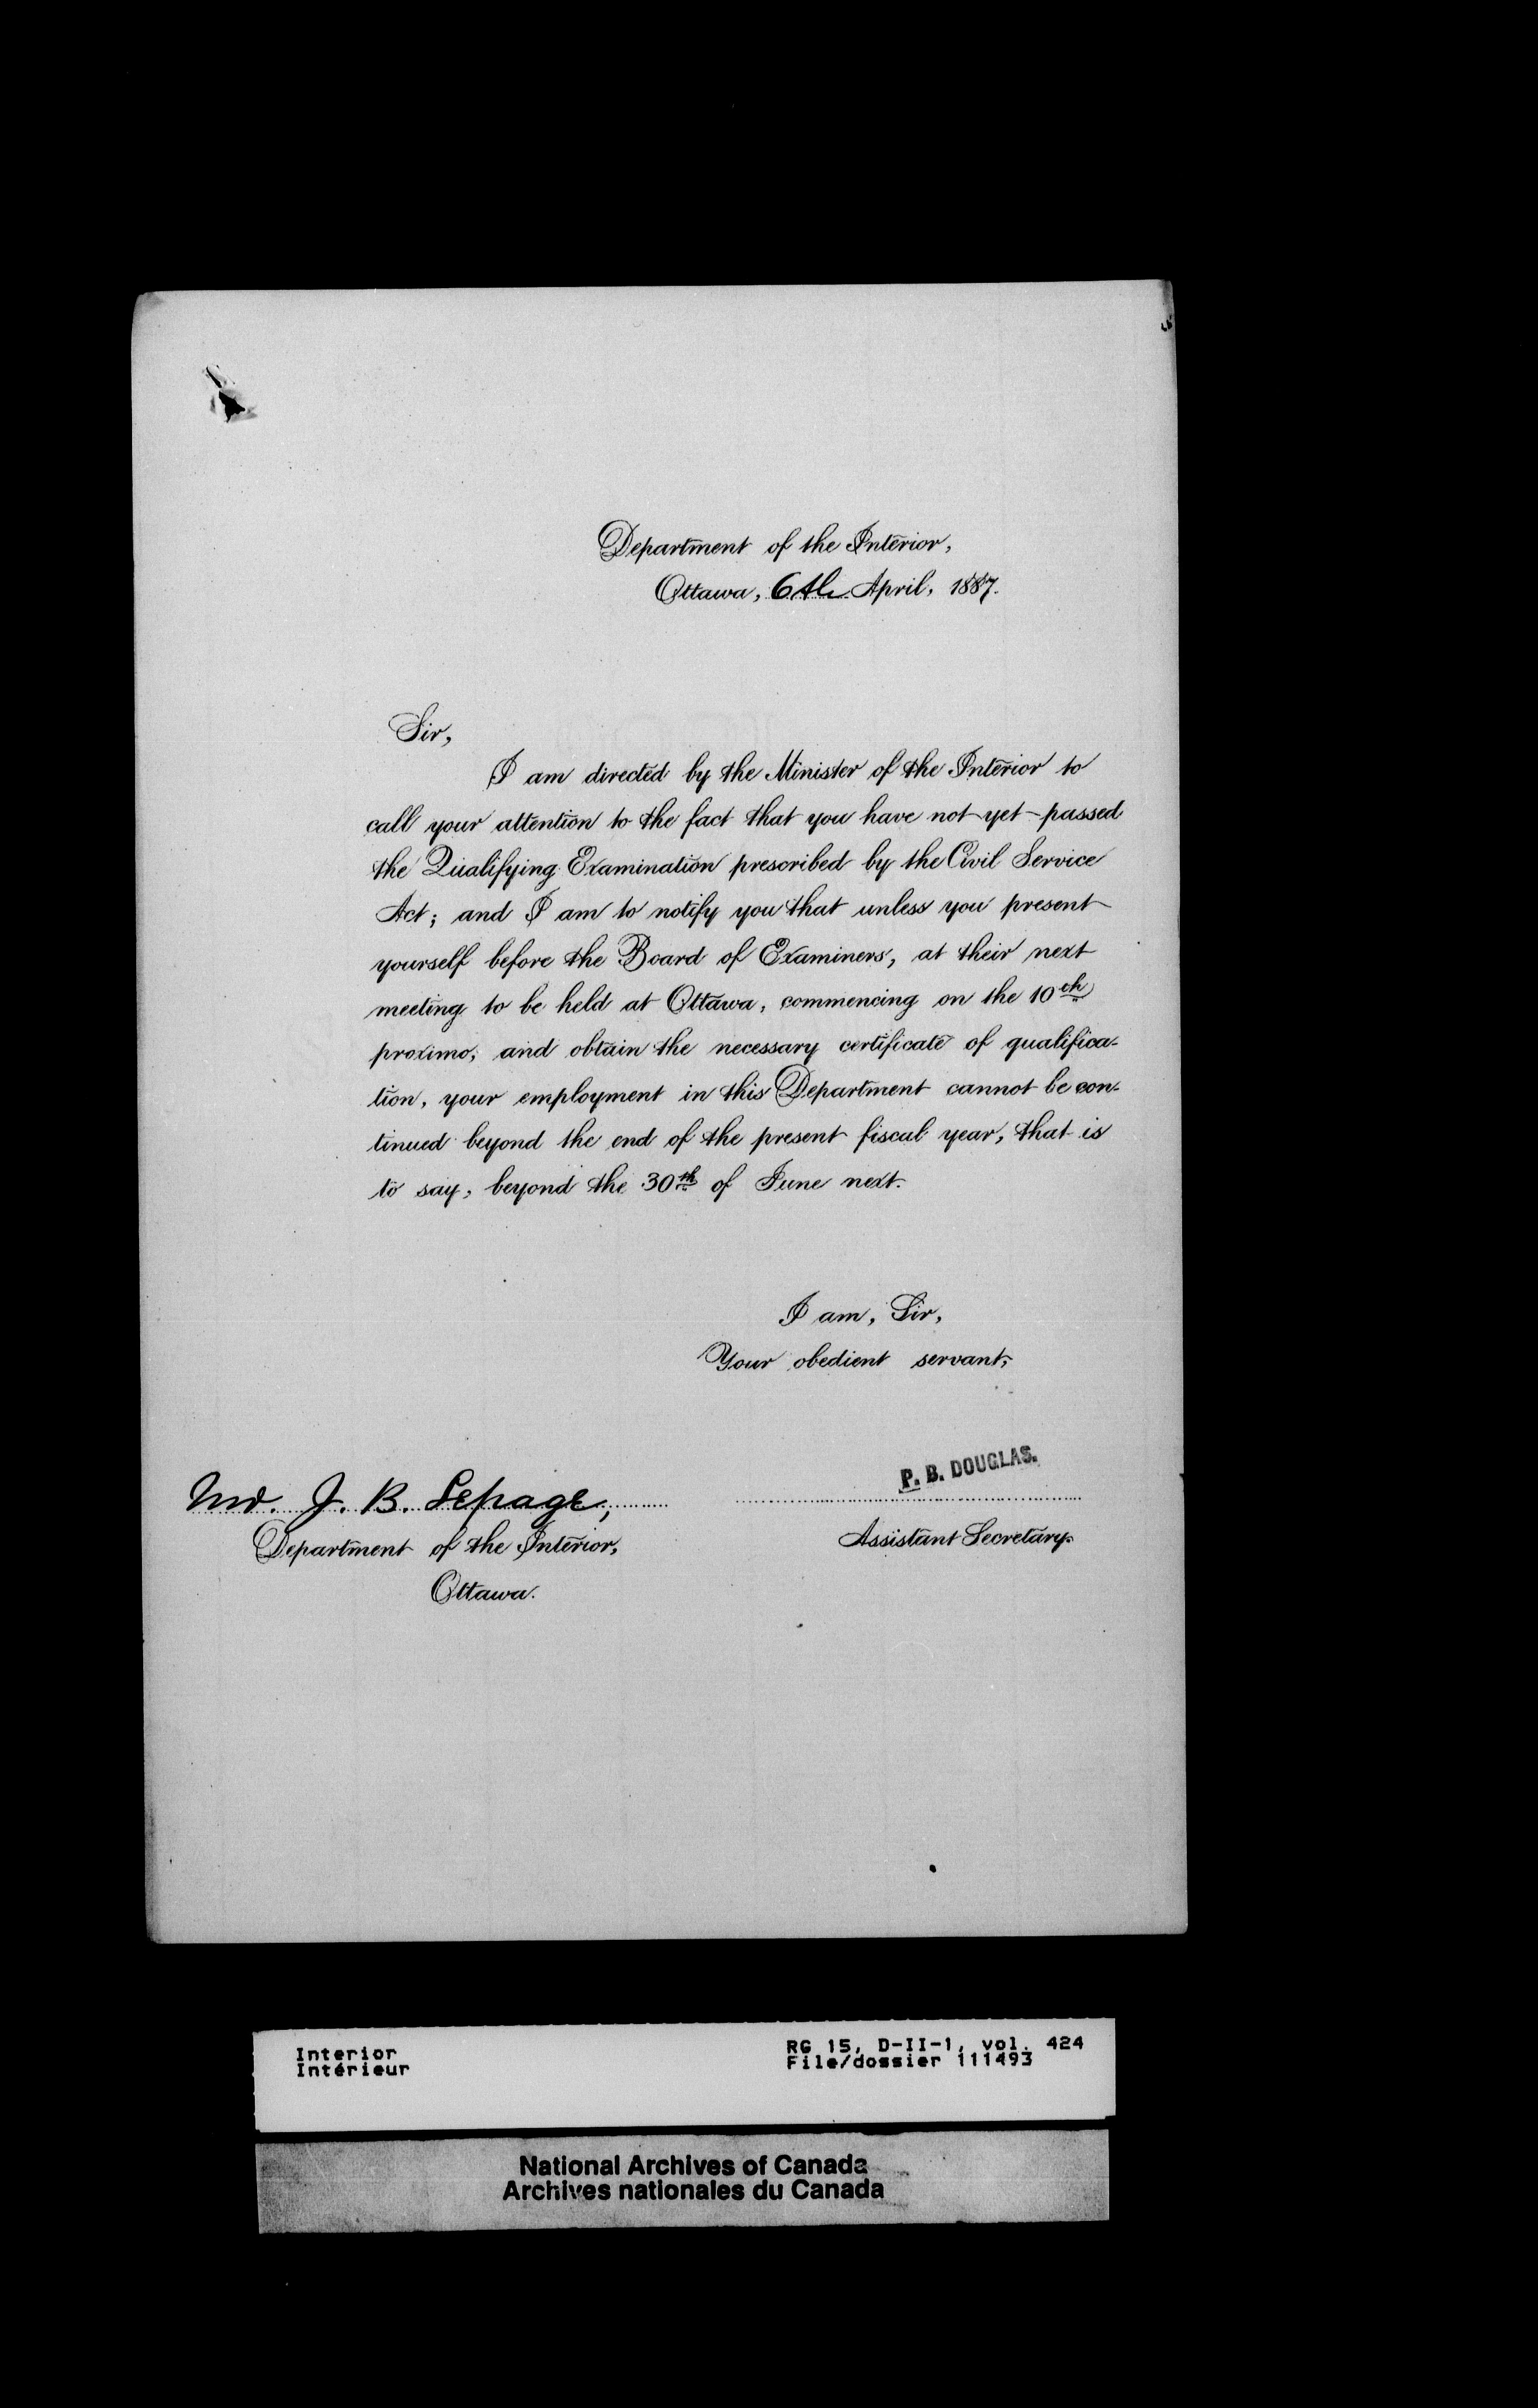 Department of the Interior,
Ottawa, 6th April, 1887.
Sir,
I am directed by the Minister of the Interior to
call your attention to the fact that you have not yet passed
the Qualifying Examination prescribed by the Civil Service
Act; and I am to notify you that unless you present
yourself before the Board of Examiners, at their next
meeting to be held at Ottawa, commencing on the 10th
proximo, and obtain the necessary certificate of qualifica-
tion, your employment in this Department cannot be con-
tinued beyond the end of the present fiscal year, that is
to say, beyond the 30th of June next.
I am, Sir,
Your obedient servant,
P. B. DOUGLAS.
Assistant Secretary.
Mr. J. B. Lepage,
Department of the Interior,
Ottawa.
Interior
Intérieur
RG 15, D-II-1, vol. 424
File/dossier 111493
National Archives of Canada
Archives nationales du Canada